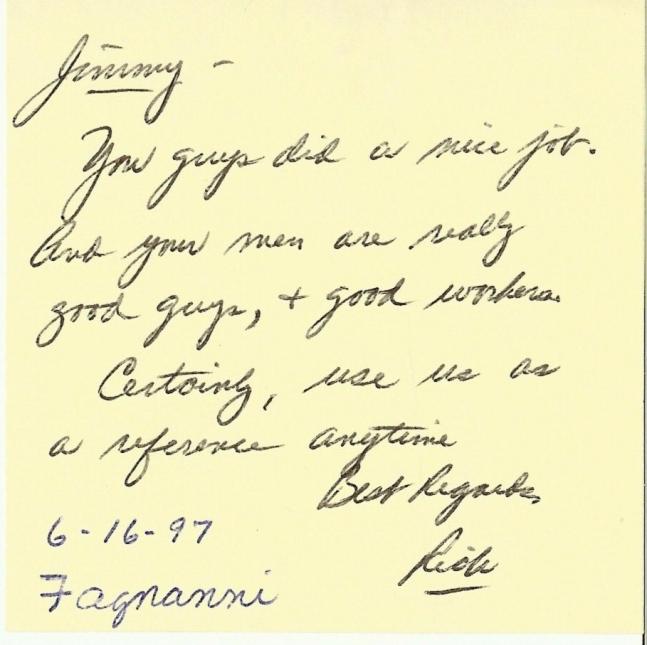 Jimmy -
You guys did a nice job.
And your men are really
good guys, + good workers.
Certainly, use us as
a reference anytime
Best Regards,
Rick
6-16-97
Fagnanni